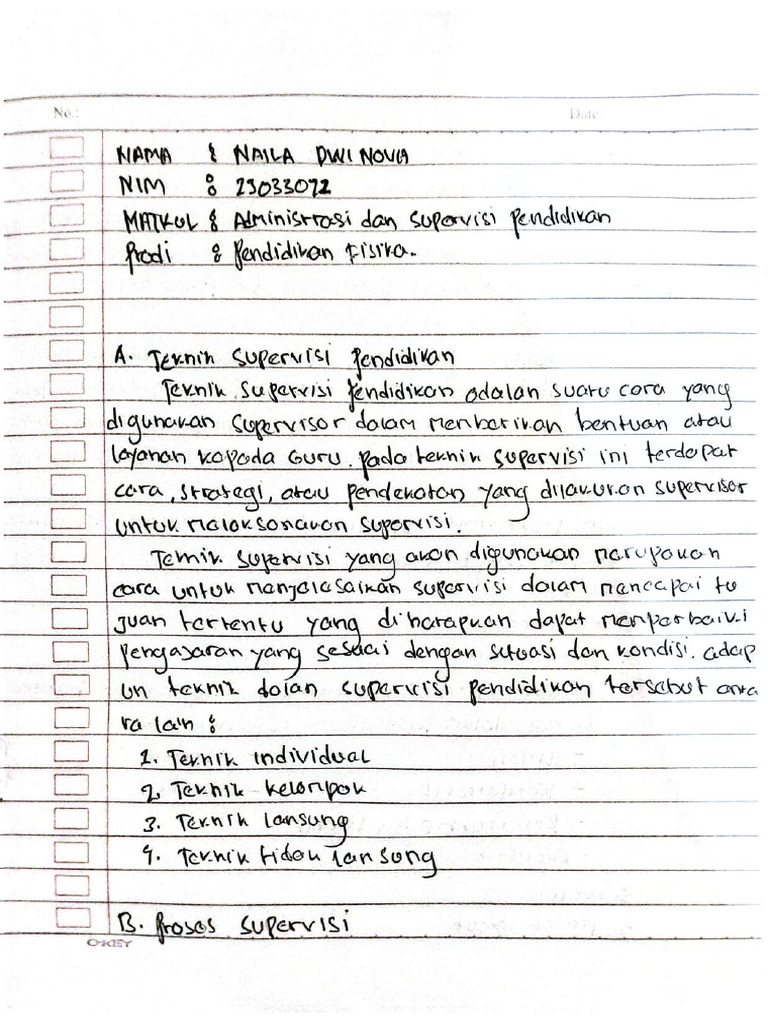 No.: Date:
NAMA : NAILA DWI NOVIA
NIM : 23033072
MATKUL : Administrasi dan supervisi pendidikan
Prodi : Pendidikan Fisika.
A. Teknik supervisi pendidikan
Teknik supervisi pendidikan adalah suatu cara yang
digunakan supervisor dalam memberikan bentuan atau
layanan kepada Guru. pada teknik supervisi ini terdapat
cara, strategi, atau pendekatan yang dilakukan supervisor
untuk melaksanakan supervisi.
Teknik supervisi yang akan digunakan merupakan
cara untuk menyelesaikan supervisi dalam mencapai tu
juan tertentu yang diharapkan dapat memperbaiki
pengajaran yang sesuai dengan situasi dan kondisi. adap
un teknik dalam supervisi pendidikan tersebut anta
ra lain :
1. Teknik individual
2. Teknik kelompok
3. Teknik lansung
4. Teknik tidak lansung
B. Proses supervisi
OKEY